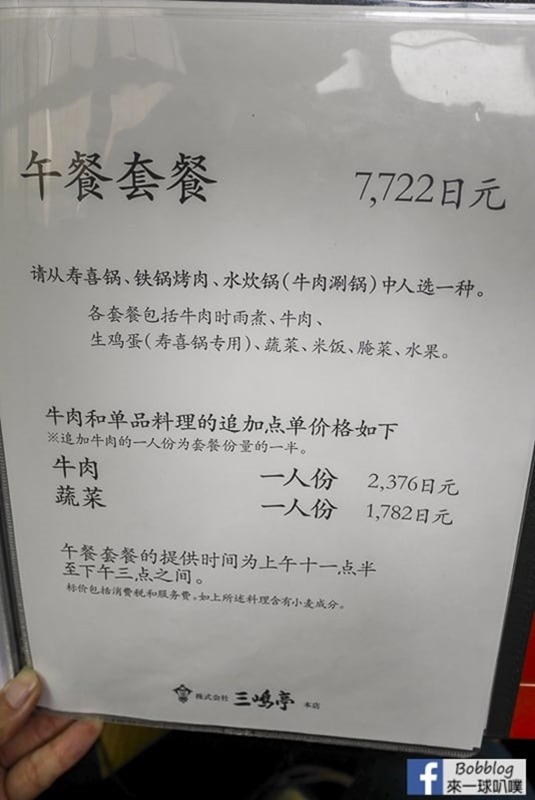 午餐套餐 7,722日元
请从寿喜锅、铁锅烤肉、水炊锅(牛肉涮锅)中人选一种。
各套餐包括牛肉时雨煮、牛肉、
生鸡蛋(寿喜锅专用)、蔬菜、米饭、腌菜、水果。
牛肉和单品料理的追加点单价格如下
※追加牛肉的一人份为套餐份量的一半。
牛肉 一人份 2,376日元
蔬菜 一人份 1,782日元
午餐套餐的提供时间为上午十一点半
至下午三点之间。
标价包括消费税和服务费。如上所述料理含有小麦成分。
株式会社 三嶋亭 本店
f Bobblog
來一球叭噗